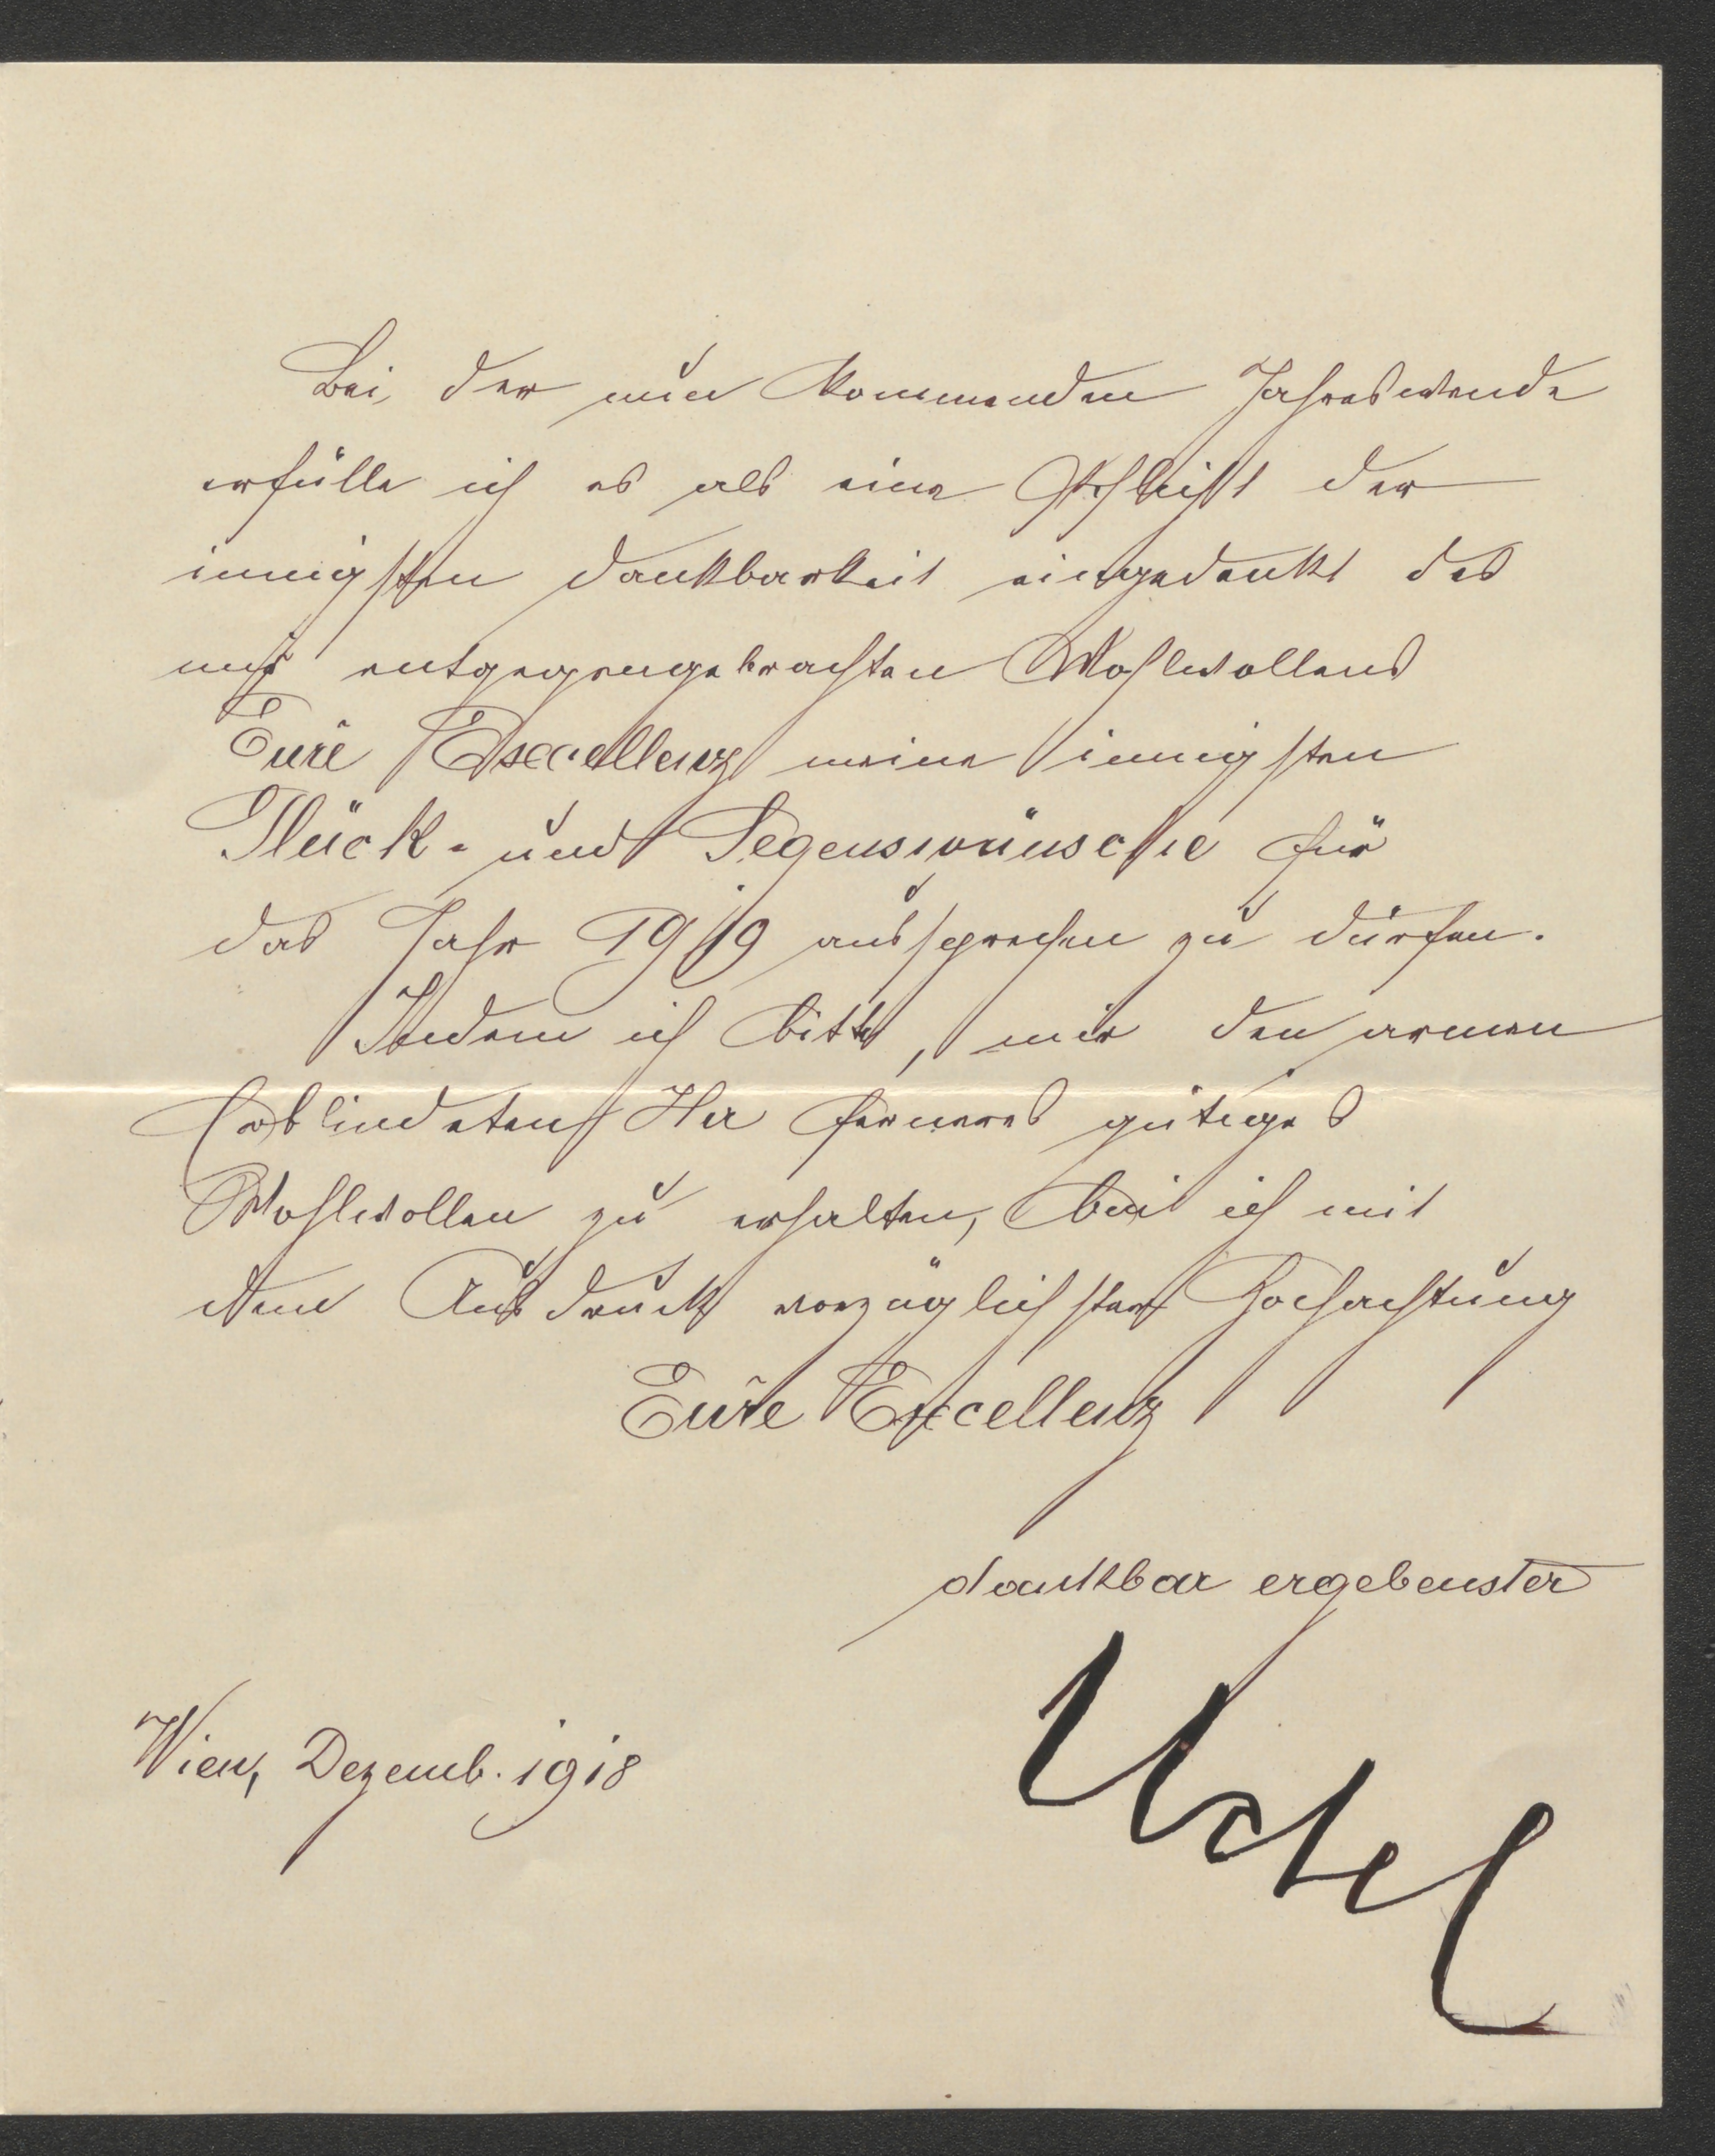 Bei der nun kommenden Jahreswende
erfülle ich es als eine Pflicht der
innigsten Dankbarkeit eingedenkt des
mir entgegengebrachten Wohlwollens
Eure Excellenz meine innigsten
Glück- und Segenswünsche für
das Jahr 1919 aussprechen zu dürfen.
Indem ich bitte, mir den armen
Erblindeten Ihr ferneres gütiges
Wohlwollen zu erhalten, bin ich mit
dem Ausdruck vorzüglichster Hochachtung
Eure Excellenz
dankbar ergebenster
Wien, Dezemb. 1918